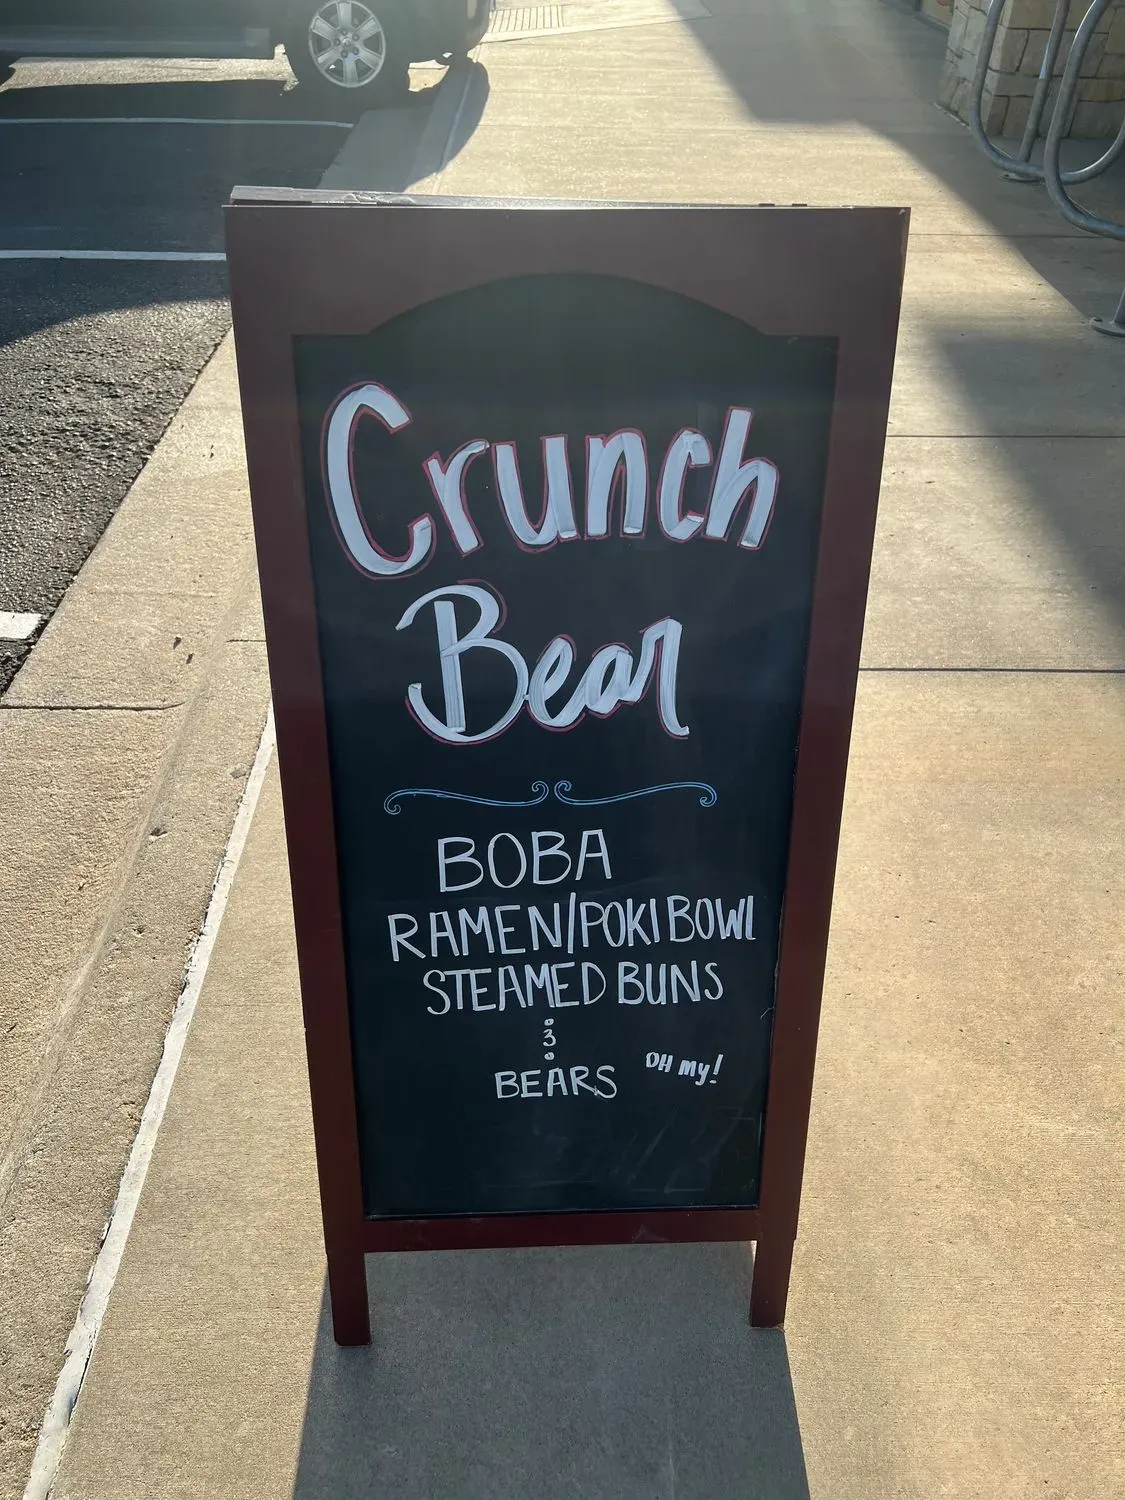 Crunch
Bear
BOBA
RAMEN/POKI BOWL
STEAMED BUNS
&
BEARS OH MY!